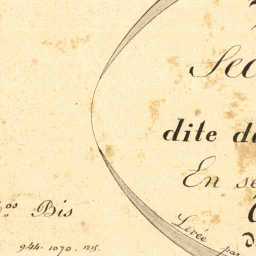 Sec
dite de
En se
Bis
Levée par
944. 1070.